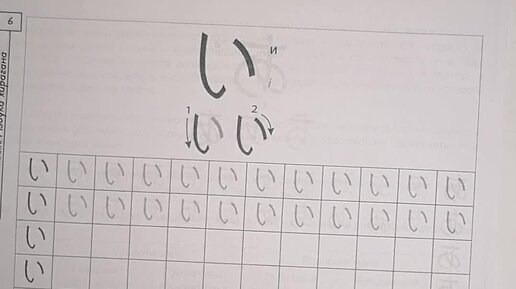 6
い и
i
1 2
い い
い い い い い い い い い い い い
い い い い い い い い い い い い
い
い
Азбука хирагана